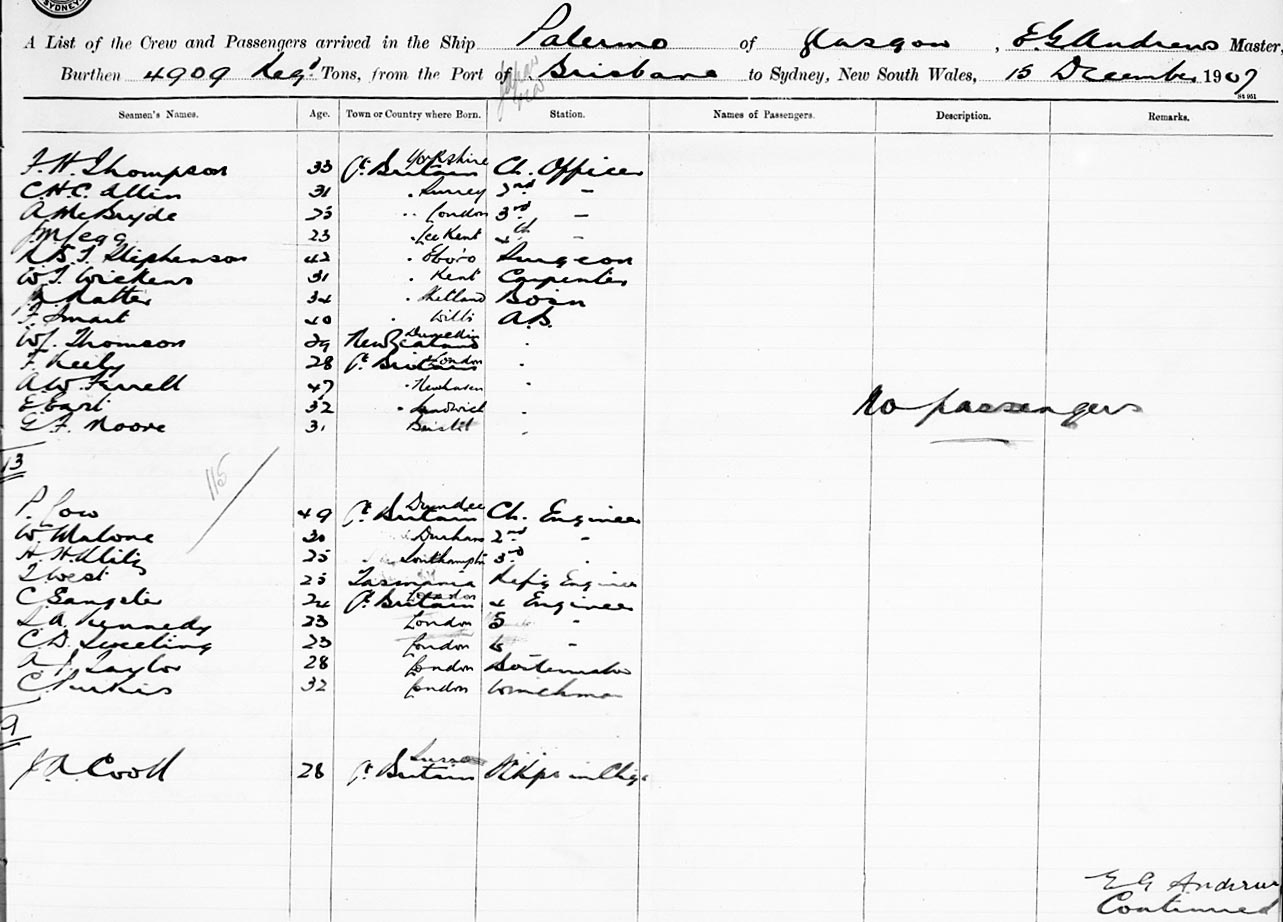 SYDNEY
A List of the Crew and Passengers arrived in the Ship Palermo of Glasgow, E. G. Andrews Master,
Burthen 4909 Regd Tons, from the Port of Brisbane to Sydney, New South Wales, 15 December 1907
St 951
Seamen's Names. Age. Town or Country where Born. Station. Names of Passengers. Description. Remarks.
F. H. Thompson 33 Gt Britain Yorkshire Ch. Officer
C. H. C. Allin 31 " Surrey 2nd "
A McBryde 25 " London 3rd "
J. M. Legg 23 " Lee Kent 4th "
Stephenson 42 " Surgeon
W. J. Wickens 31 " Kent Carpenter
Ratter 34 " Shetland Bosn
F Smart 40 " Wilts A.B.
W J. Thomson 29 New Zealand Dunedin "
F. Keily 28 Gt Britain London "
A. W. Farrell 47 " Newhaven "
E. East 32 " Sandwich "
No passengers
G. F. Moore 31 Bristol "
13
115
P. Low 49 Gt Britain Dundee Ch. Engineer
W Malone 30 " Durham 2nd "
H. H. 25 " Southampton 3rd "
J West 25 Tasmania Refrig Engineer
C Sangster 24 Gt Britain London 4 Engineer
L. A. Kennedy 23 London 5 "
C. D. Sweeting 23 London 6 "
A. J. Taylor 28 London Boilermaker
C Purkis 32 London Winchman
9
J. A. Cook 28 Gt Britain Surrey
E G Andrews
Continued